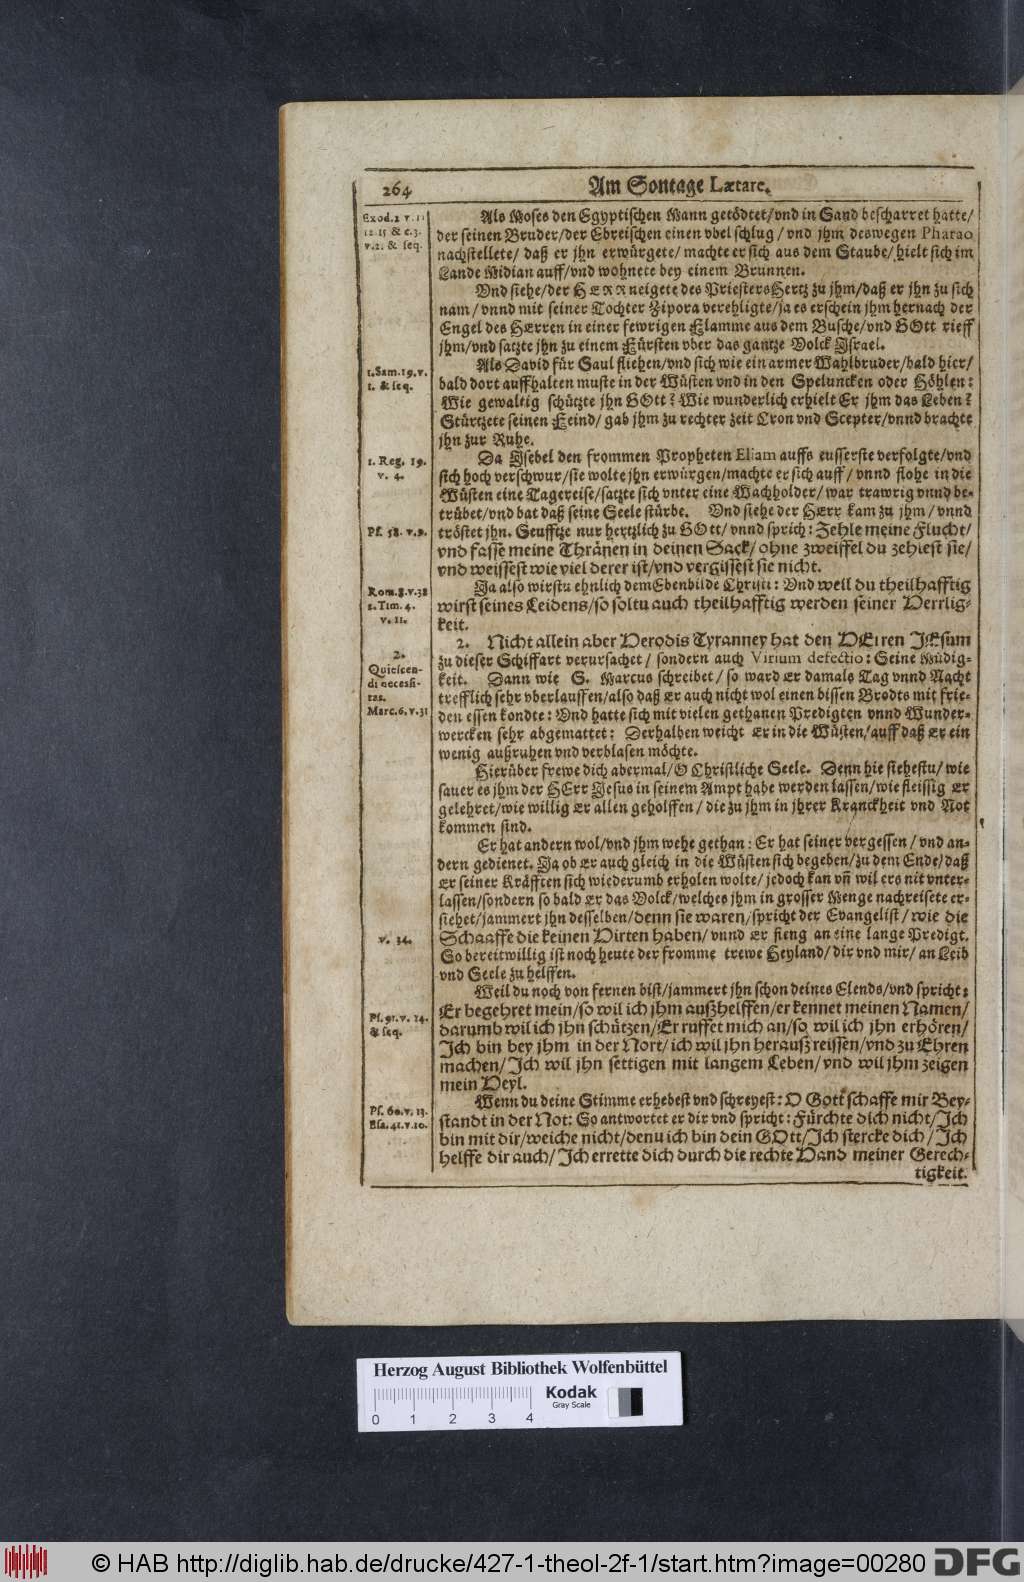 264
Am Sontage Lætare.
Exod. 2 v. 11
12. 15 & c. 3.
v. 2. & seq.
Als Moses den Egyptischen Mann getödtet/vnd in Sand bescharret hatte/
der seinen Bruder/der Ebreischen einen vbel schlug/ vnd jhm deswegen Pharao
nachstellete/ daß er jhn erwürgete/ machte er sich aus dem Staube/ hielt sich im
Lande Midian auff/vnd wohnete bey einem Brunnen.
Vnd siehe/der HERR neigete des Priesters Hertz zu jhm/daß er jhn zu sich
nam/ vnnd mit seiner Tochter Zipora verehligte/ja es erschein jhm hernach der
Engel des HErren in einer fewrigen Flamme aus dem Busche/vnd GOtt rieff
jhm/vnd satzte jhn zu einem Fürsten vber das gantze Volck Israel.
1. Sam. 19. v.
1. & seq.
Als David für Saul fliehen/vnd sich wie ein armer Wahlbruder/bald hier/
bald dort auffhalten muste in der Wüsten vnd in den Speluncken oder Höhlen:
Wie gewaltig schützte jhn GOtt? Wie wunderlich erhielt Er jhm das Leben?
Stürtzete seinen Feind/ gab jhm zu rechter zeit Cron vnd Scepter/vnnd brachte
jhn zur Ruhe.
1. Reg. 19.
v. 4.
Da Isebel den frommen Propheten Eliam auffs eusserste verfolgte/vnd
sich hoch verschwur/sie wolte jhn erwürgen/machte er sich auff/ vnnd flohe in die
Wüsten eine Tagereise/satzte sich vnter eine Wachholder/ war trawrig vnnd be-
trübet/vnd bat daß seine Seele stürbe. Vnd siehe der HErr kam zu jhm/ vnnd
Ps. 58. v. 9.
tröstet jhn. Seufftze nur hertzlich zu GOtt/ vnnd sprich: Zehle meine Flucht/
vnd fasse meine Thränen in deinen Sack/ ohne zweiffel du zehlest sie/
vnd weissest wie viel derer ist/vnd vergissest sie nicht.
Rom. 8. v. 38
2. Tim. 4.
v. 11.
Ja also wirstu ehnlich dem Ebenbilde Christi: Vnd weil du theilhafftig
wirst seines Leidens/so soltu auch theilhafftig werden seiner Herrlig-
keit.
2.
Quiescen-
di necessi-
tas.
Marc. 6. v. 31
2. Nicht allein aber Herodis Tyranney hat den HErren JEsum
zu dieser Schiffart verursachet/ sondern auch Virium defectio: Seine Müdig-
keit. Dann wie S. Marcus schreibet/ so ward Er damals Tag vnnd Nacht
trefflich sehr vberlauffen/also daß Er auch nicht wol einen bissen Brodts mit frie-
den essen kondte: Vnd hatte sich mit vielen gethanen Predigten vnnd Wunder-
wercken sehr abgemattet: Derhalben weicht Er in die Wüsten/auff daß Er ein
wenig außruhen vnd verblasen möchte.
Hierüber frewe dich abermal/O Christliche Seele. Denn hie siehestu/ wie
sauer es jhm der HErr Jesus in seinem Ampt habe werden lassen/wie fleissig Er
gelehret/wie willig Er allen geholffen/ die zu jhm in jhrer Kranckheit vnd Not
kommen sind.
Er hat andern wol/vnd jhm wehe gethan: Er hat seiner vergessen/ vnd an-
dern gedienet. Ja ob Er auch gleich in die Wüsten sich begeben/zu dem Ende/daß
Er seiner Kräfften sich wiederumb erholen wolte/ jedoch kan vñ wil ers nit vnter-
lassen/sondern so bald Er das Volck/welches jhm in grosser Menge nachreisete er-
siehet/jammert jhn desselben/denn sie waren/spricht der Evangelist/ wie die
v. 34.
Schaaffe die keinen Hirten haben/ vnnd Er fieng an eine lange Predigt.
So bereitwillig ist noch heute der fromme trewe Heyland/ dir vnd mir/ an Leib
vnd Seele zu helffen.
Weil du noch von fernen bist/jammert jhn schon deines Elends/vnd spricht:
Ps. 91. v. 14.
& seq.
Er begehret mein/so wil ich jhm außhelffen/er kennet meinen Namen/
darumb wil ich jhn schützen/Er ruffet mich an/so wil ich jhn erhören/
Ich bin bey jhm in der Nott/ ich wil jhn herauß reissen/vnd zu Ehren
machen/ Ich wil jhn settigen mit langem Leben/ vnd wil jhm zeigen
mein Heyl.
Ps. 60. v. 13.
Esa. 41. v. 10.
Wenn du deine Stimme erhebest vnd schreyest: O Gott schaffe mir Bey-
standt in der Not: So antwortet er dir vnd spricht: Fürchte dich nicht/Ich
bin mit dir/weiche nicht/denn ich bin dein GOtt/Ich stercke dich/ Ich
helffe dir auch/ Ich errette dich durch die rechte Hand meiner Gerech-
tigkeit.
Herzog August Bibliothek Wolfenbüttel
0 1 2 3 4
Kodak
Gray Scale
© HAB http://diglib.hab.de/drucke/427-1-theol-2f-1/start.htm?image=00280
DFG